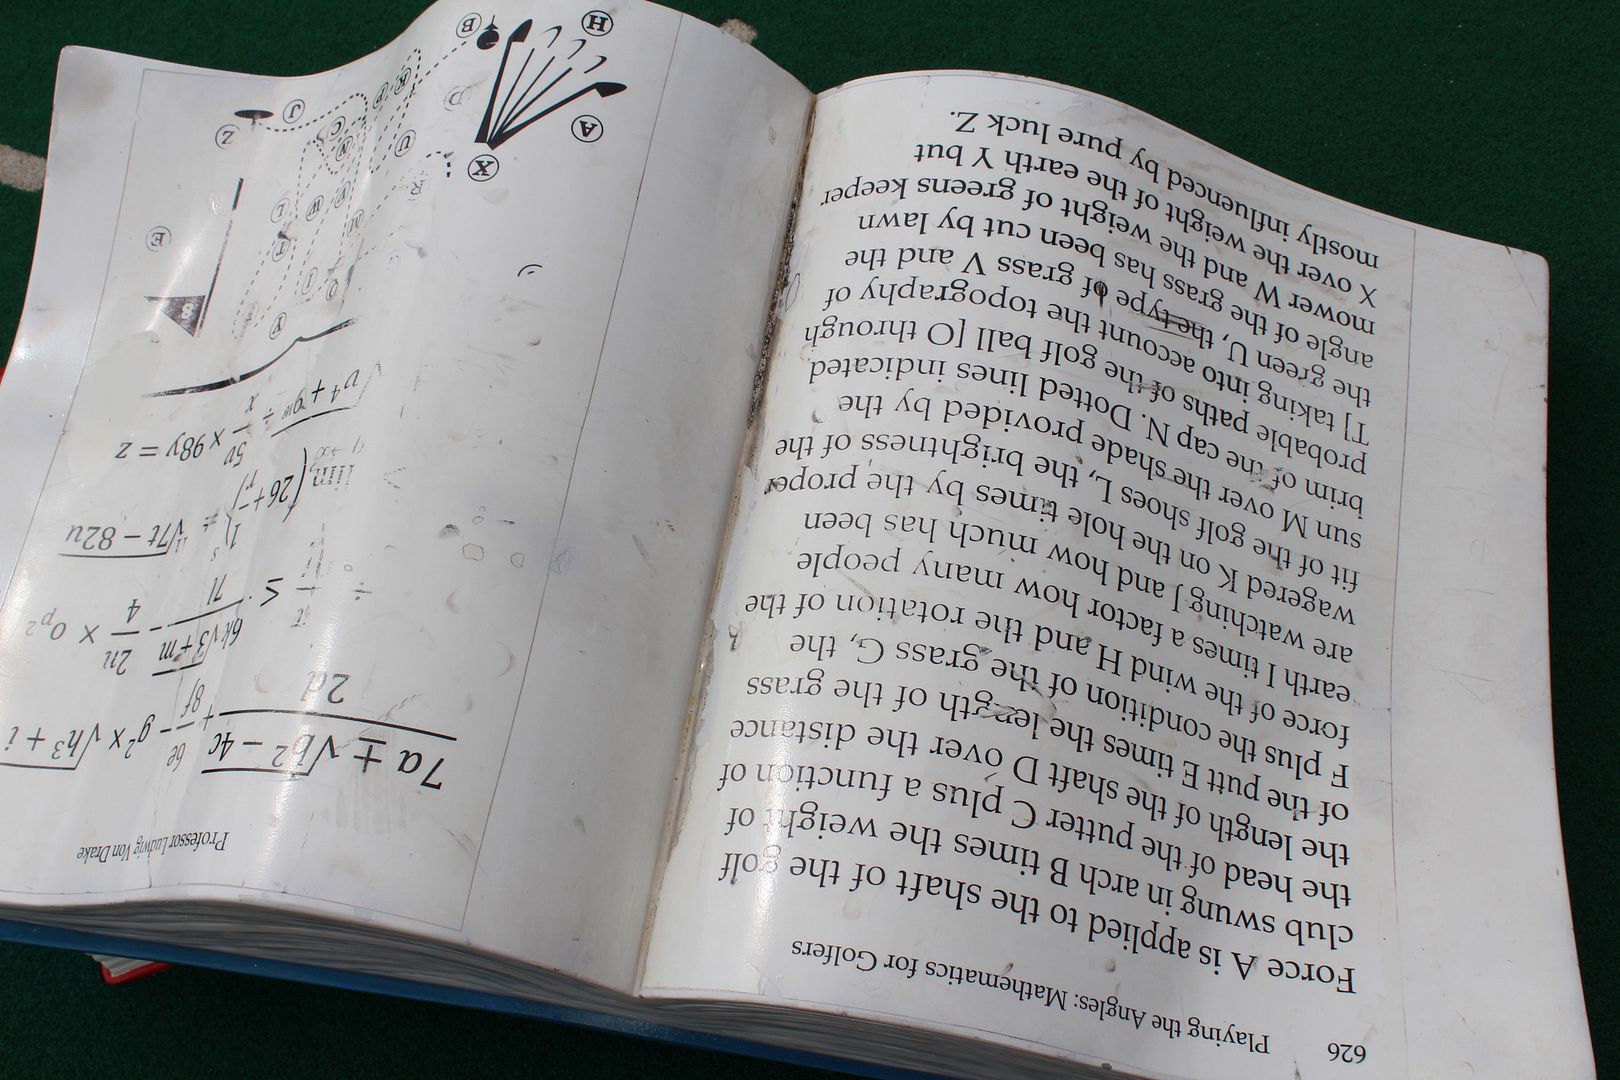 626 Playing the Angles: Mathematics for Golfers
Force A is applied to the shaft of the golf
club swung in arch B times the weight of
the head of the putter C plus a function of
the length of the shaft D over the distance
of the putt E times the length of the grass
F plus the condition of the grass G, the
force of the wind H and the rotation of the
earth I times a factor how many people
are watching J and how much has been
wagered K on the hole times by the proper
fit of the golf shoes L, the brightness of the
sun M over the shade provided by the
brim of the cap N. Dotted lines indicated
probable paths of the golf ball [O through
T] taking into account the topography of
the green U, the type of grass V and the
angle of the grass has been cut by lawn
mower W and the weight of greens keeper
X over the weight of the earth Y but
mostly influenced by pure luck Z.
Professor Ludwig Von Drake
7a ± √b² − 4c
2d
+ 6e
8f
− g² x √h³ + i
6k√3 + m
− 2n
4
× o
√7t − 82u
lim
(26 +
v⁴ + 9ʷ
÷ 5v
x
× 98y = z
Y
S
E
T
L
W
U
R
X
A
N
C
Z
J
P
K
B
H